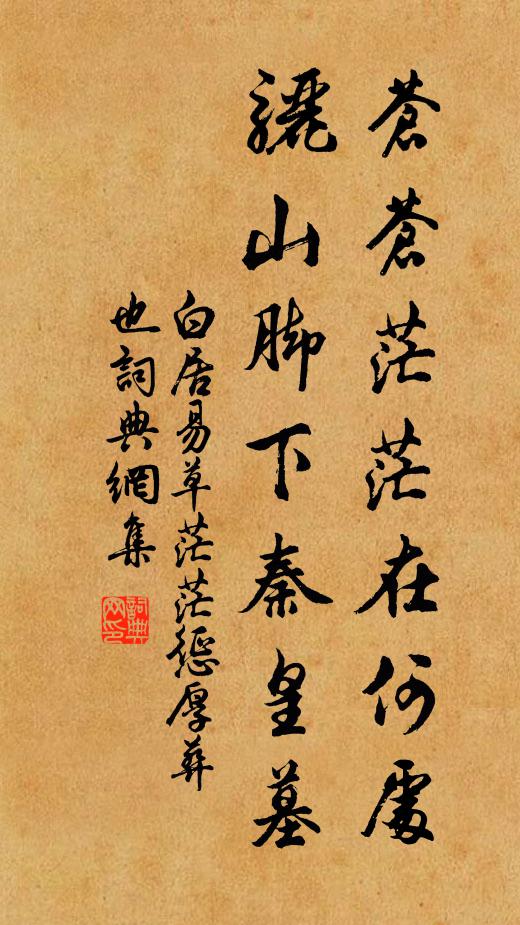 蒼蒼茫茫在何處
驪山脚下秦皇墓
白居易草茫茫懲厚葬
也詞典網集
詞典網印